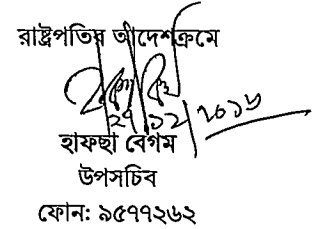 রাষ্ট্রপতির আদেশক্রমে
২৭/১২/২০১৬
হাফছা বেগম
উপসচিব
ফোন: ৯৫৭৭২৬২